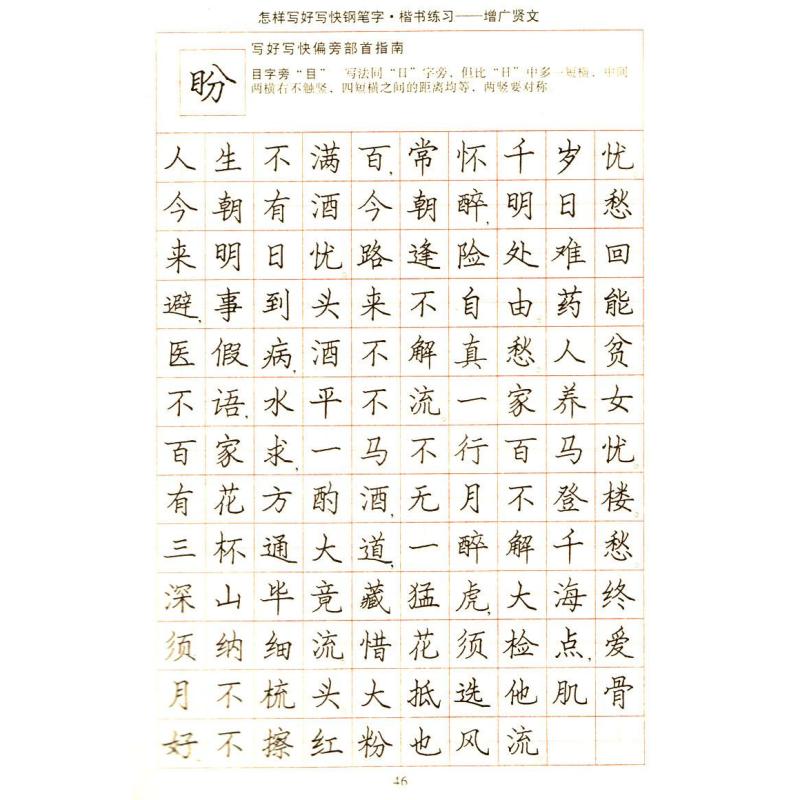 怎样写好写快钢笔字·楷书练习——增广贤文
盼
写好写快偏旁部首指南
目字旁“目” 写法同“日”字旁，但比“日”中多一短横，中间
两横右不触竖，四短横之间的距离均等，两竖要对称
人生不满百，常怀千岁忧
今朝有酒今朝醉，明日愁
来明日忧路逢险处难回
避，事到头来不自由药能
医假病，酒不解真愁人贫
不语，水平不流一家养女
百家求，一马不行百马忧
有花方酌酒，无月不登楼
三杯通大道，一醉解千愁
深山毕竟藏猛虎，大海终
须纳细流惜花须检点，爱
月不梳头大抵选他肌骨
好，不擦红粉也风流
46